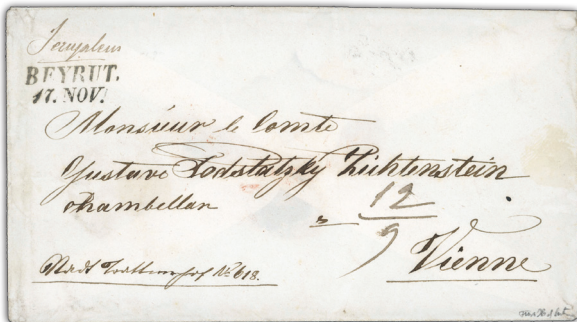 Jerusalem
BEYRUT.
17. NOV.
Monsieur le Comte
Gustave Podstatzky Lichtenstein
chambellan
12
9
Vienne
Stadt No 618.